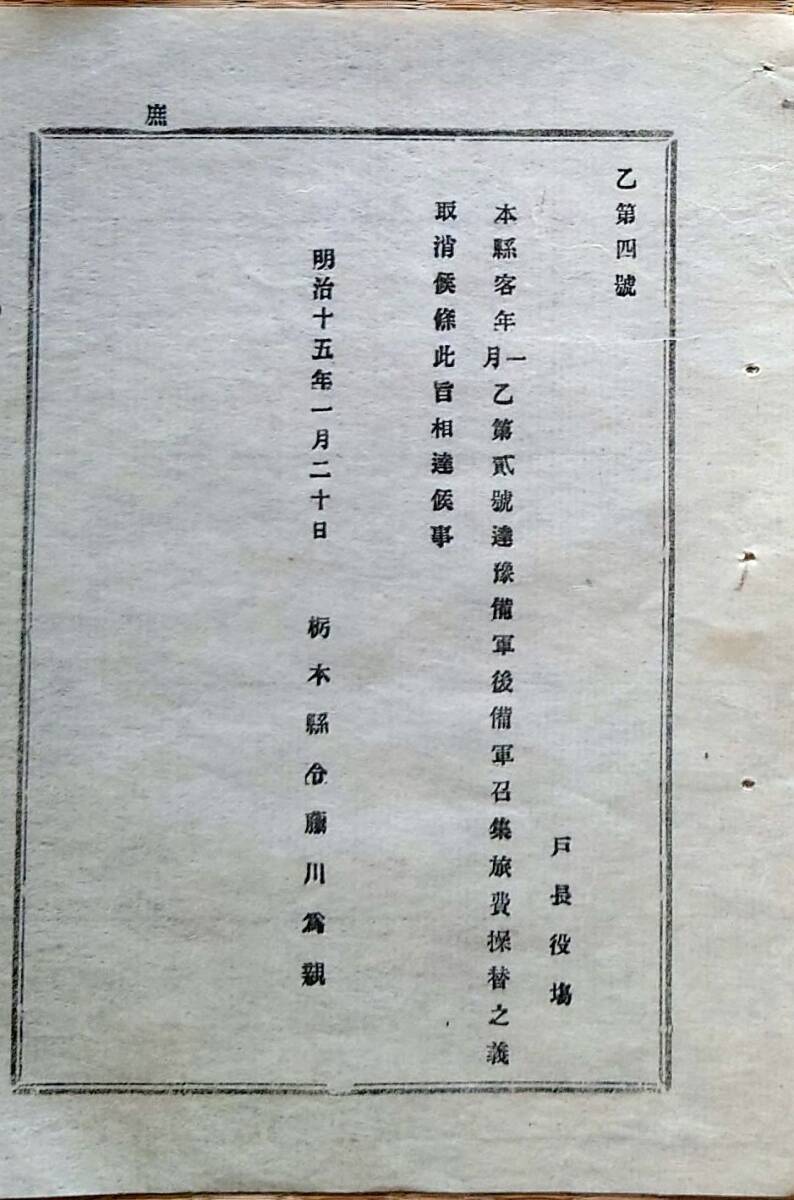 乙第四號
戸長役塲
本縣客年一月乙第貳號達豫備軍後備軍召集旅費操替之義
取消候條此旨相達候事
明治十五年一月二十日
栃木縣令藤川爲親
庶